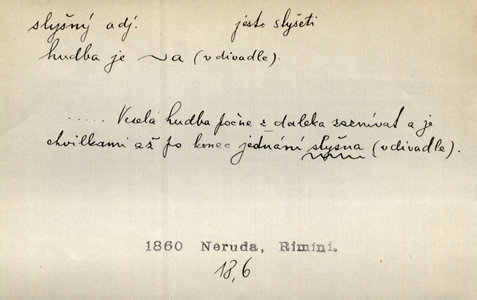 slyšný adj. jest slyšeti
hudba je ~a (v divadle).
..... Veselá hudba počne z daleka zaznívat a je
chvilkami až po konec jednání slyšna (v divadle).
1860 Neruda, Rimini.
18,6